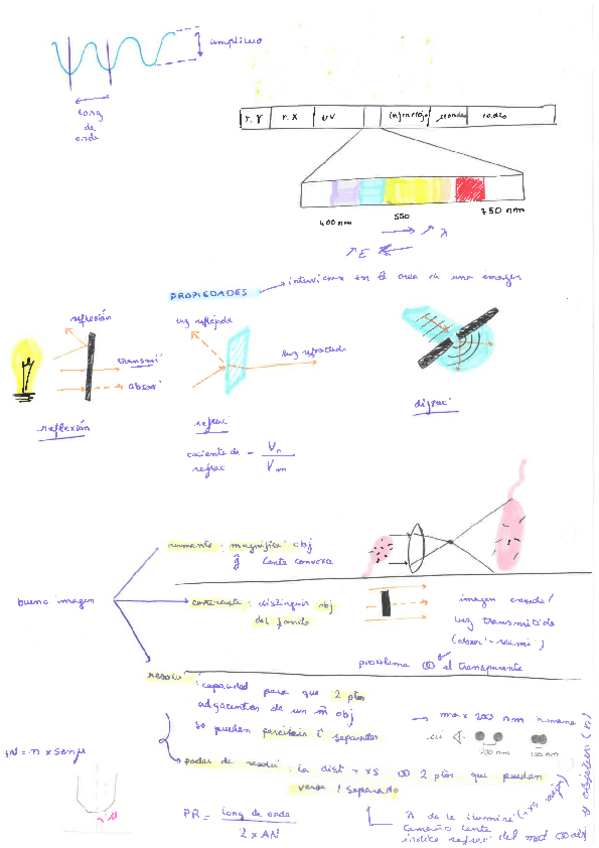 amplitud
long
de
onda
r. γ r. X UV infrarrojo ondas radio
400 nm 550 750 nm
↗ λ
↗ E
PROPIEDADES → intervienen en la crea de una imagen
reflexión
transmi
absor
reflexión
luz reflejada
luz refractada
refrac
cociente de refrac = Vn / Vm
difrac
buena imagen
aumento: magnifica obj
lente convexa
contraste: distinguir obj
del fondo
imagen creada/
luz transmitida
problema al transparente
resolu: capacidad para que 2 ptos
adyacentes de un m obj
se puedan percibir separados
→ max 200 nm humano
200 nm 100 nm
poder de resolu: la dist + xs 2 ptos que pueden
verse separado
AN = n x sen μ
PR = long de onda / 2 x AN
λ de la ilumini
tamaño lente
índice refrac del mat